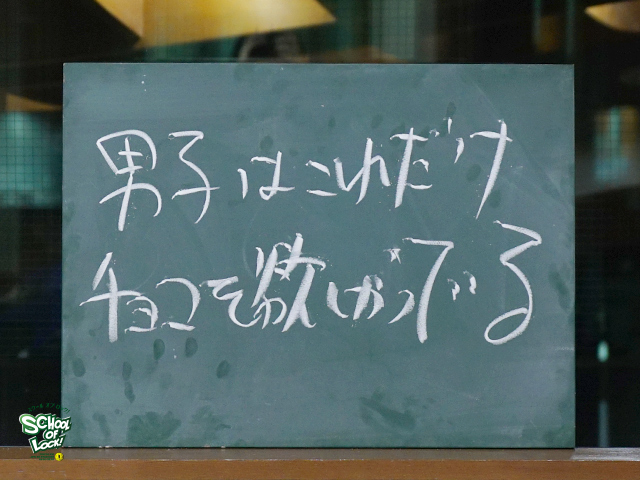 男子はこれだけ
チョコを欲しがっている
SCHOOL
OF
LOCK!